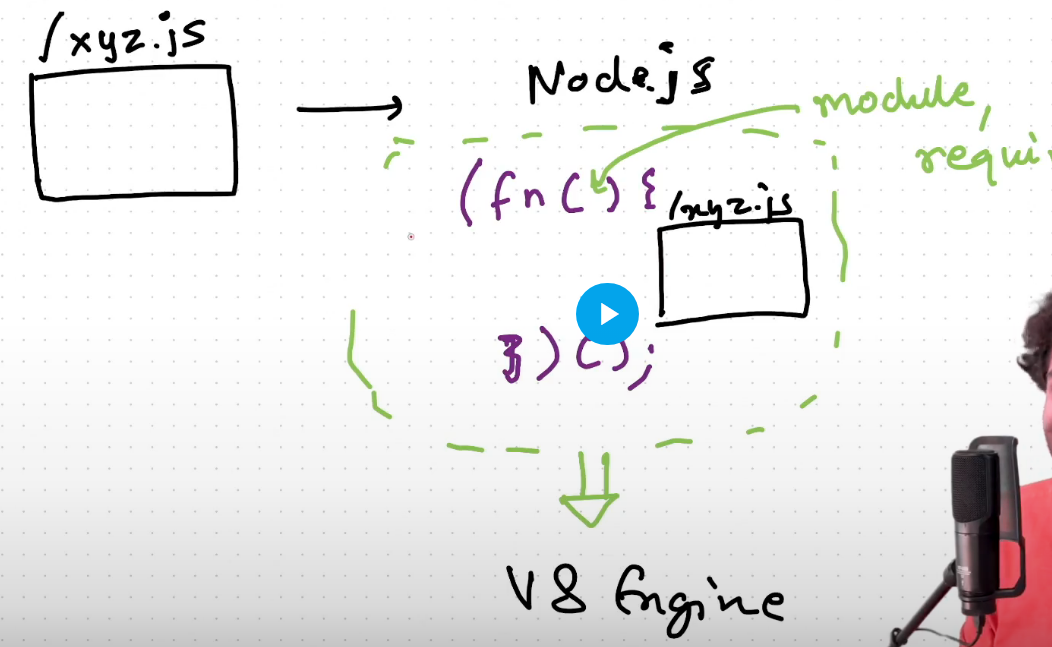 /xyz.js
Node.js
module,
requi
(fn() {
/xyz.js
})();
V8 Engine